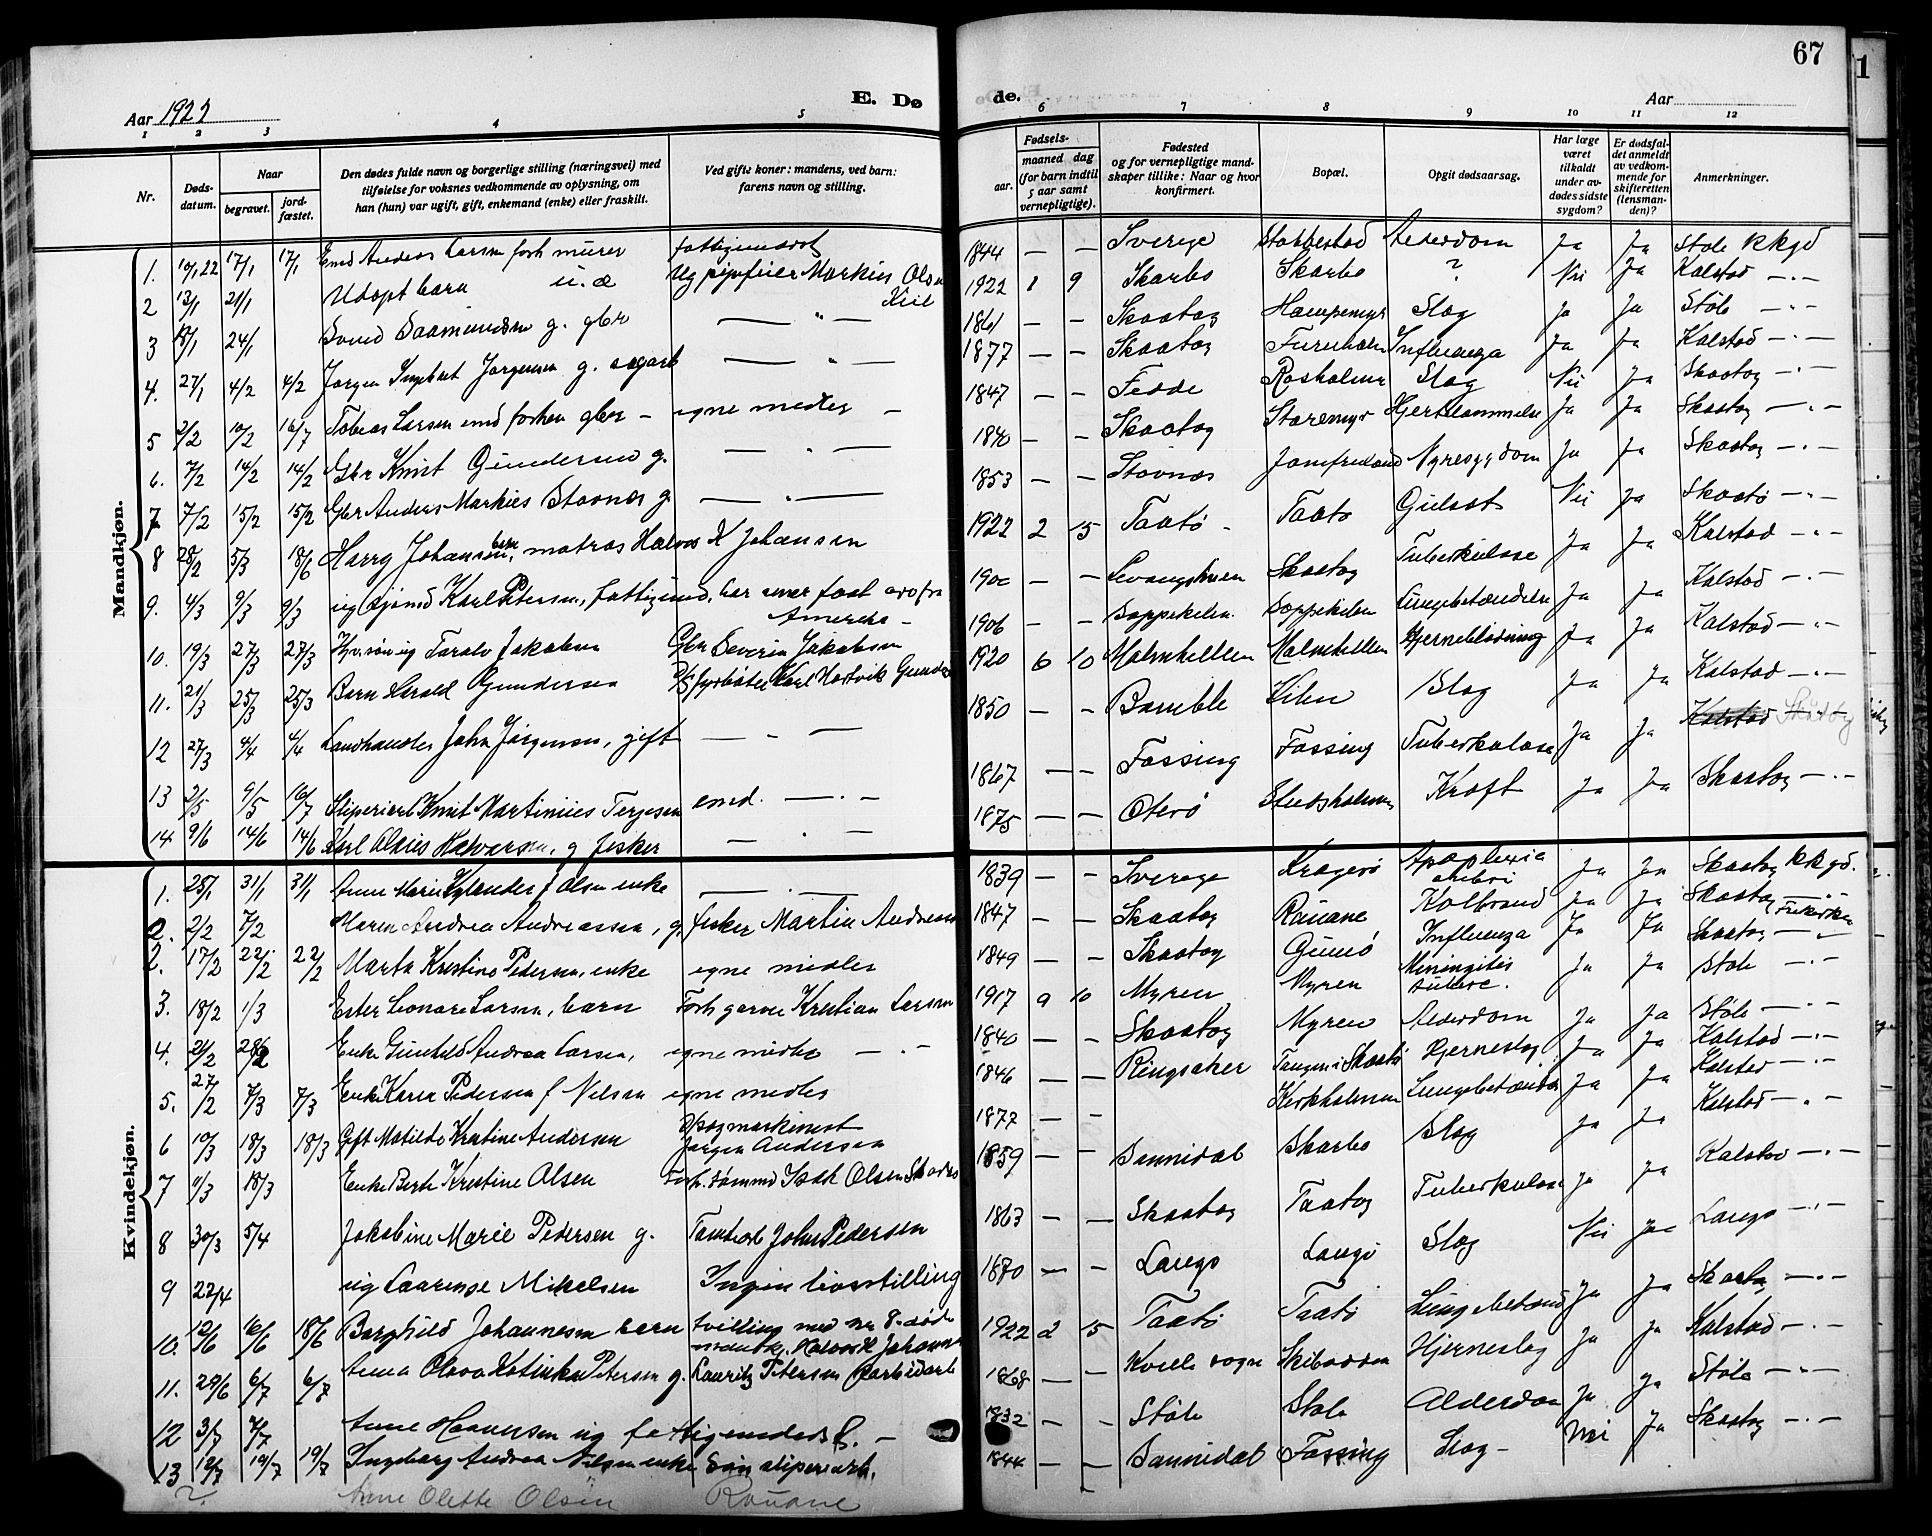 67
Aar 1922
E. Dø
de.
Aar
1 2 3 4 5 6 7 8 9 10 11 12
Nr.
Døds-
datum.
Naar
begravet.
jord-
fæstet.
Den dødes fulde navn og borgerlige stilling (næringsvei) med
tilføielse for voksnes vedkommende av oplysning, om
han (hun) var ugift, gift, enkemand (enke) eller fraskilt.
Ved gifte koner: mandens, ved barn:
farens navn og stilling.
Fødsels-
aar.
maaned dag
(for barn indtil
5 aar samt
vernepligtige).
Fødested
og for vernepligtige mand-
skaper tillike: Naar og hvor
konfirmert.
Bopæl.
Opgit dødsaarsag.
Har læge
været
tilkaldt
under av-
dødes sidste
sygdom?
Er dødsfal-
det anmeldt
av vedkom-
mende for
skifteretten
(lensman-
den)?
Anmerkninger.
Mandkjøn.
1. 10/1 22 17/1 17/1 Emd Anders Larsen forh murer fattigunderst 1844 — — Sverige Stabbestad Alderdom Ja Ja Støle kkgd
2 13/1 21/1 Udøpt barn u. æ Ug pipefeier Markus Olsen Kiil 1922 1 9 Skarbo Skarbo ? Nei Ja Kalstad — " —
3 18/1 24/1 Svend Saamundsen g. gbr — " — 1861 — — Skaatøy Slag Ja Ja Støle — " —
4. 27/1 4/2 4/2 Jørgen Ingbret Jørgensen g. — " — 1877 — — Skaatøy Furuholmen Influenza Ja Ja Kalstad — " —
5 2/2 10/2 16/7 Tobias Larsen emd forhen gbr — egne midler — 1847 — — Fedde Rosholmen Slag Nei Ja Skaatøy — " —
6. 7/2 14/2 14/2 Gbr Knut Gundersen g. — " — 1840 — — Skaatøy Storemyr Hjertelammelse Ja Ja Skaatøy — " —
7 7/2 15/2 15/2 Gbr Anders Markus Stavnæs g. — " — 1853 — — Stavnæs Jomfruland Nyresygdom Ja Ja Skaatøy — " —
8 28/2 5/3 18/6 Harry Johansen, barn matros Halvor K Johansen 1922 2 15 Taatø — Taatø Gulsot Nei Ja Skaatø — " —
9. 4/3 9/3 9/3 ug sjømd Karl Petersen, fattigund. Amerika — 1900 — — Skaatøy Tuberkulose Ja Ja Kalstad — " —
10. 19/3 27/3 27/3 ug Taralv Jakobsen Gbr Severin Jakobsen 1906 — — Soppekilen Soppekilen Lungebetændelse Ja Ja Kalstad — " —
11. 21/3 25/3 25/3 Barn Harald Gundersen D/S fyrbøter Karl Hartvik Gundersen 1920 6 10 Malmhellen Malmhellen Hjerneblødning Ja Ja Kalstad — " —
12 27/3 4/4 4/4 Landhandler John Jørgensen, gift — " — 1850 — — Bamble Kilen Slag Ja Ja Kalstad — " —
13 2/5 9/5 16/7 Sliperiarb Knut Martinius Terjesen emd. — " — 1867 — — Fossing Fossing Tuberkulose Ja Ja Kalstad Skaatøy
14 9/6 14/6 14/6 Karl Alexius Halvorsen, g fisker — " — 1875 — — Oterø Kræft Ja Ja Skaatøy — " —
Kvindekjøn.
1. 25/1 31/1 31/1 Anne Marie f Olsen enke — " — 1839 — — Sverige Kragerø Apoplexia Ja Ja Skaatøy kkgd.
2. 2/2 7/2 Maren Andrea Andreassen, g. fisker Martin Andreassen 1847 — — Skaatøy Rauane Koldbrand Ja Ja Skaatøy — " —
2. 17/2 22/2 22/2 Marta Kristine Pedersen, enke egne midler 1849 — — Skaatøy Gumø Influenza Ja Ja Skaatøy — " —
3. 18/2 1/3 Ester Leonare Larsen, barn Forh garver Kristian Larsen 1917 9 10 Myren Myren Miningitis Ja Ja Støle — " —
4. 21/2 28/2 Enke Gunhild Andrea Larsen, egne midler — " — 1840 — — Skaatøy Myren Alderdom Ja Ja Støle — " —
5. 27/2 7/3 7/3 Enke Karen Pedersen f Nilsen egne midler 1846 — — Ringsaker Tangen i Skaatø Hjerneslag Ja Ja Kalstad — " —
6 10/3 18/3 18/3 Gift Matilde Kristine Andersen Jørgen Andersen 1877 — — Kirkholmen Lungebetænd Ja Ja Kalstad — " —
7 11/3 18/3 Enke Berte Kristine Olsen Forh. tømmd Isak Olsen Skarbo 1859 — — Sannidal Skarbo Slag Ja Ja Kalstad — " —
8 30/3 5/4 Jakobine Marie Pedersen g. John Pedersen 1863 — — Skaatøy Taatøy Tuberkulose Ja Ja Kalstad — " —
9 22/4 ug Laurense Mikelsen Ingen livsstilling 1870 — — Langø Langø Slag Nei Ja Langø — " —
10. 12/6 16/6 18/6 Borghild Johannesen barn tvilling med nr 8 døde mandkj. Halvor K Johannsen 1922 2 15 Taatø Taatø Lungebetænd Ja Ja Skaatøy — " —
11. 29/6 6/7 6/7 Anna Olava Katinka Petersen g. Lauritz Petersen 1868 — — Kville sogn Skibodden Hjerneslag Ja Ja Kalstad — " —
12 3/7 7/7 Anne Halvorsen ug fattigunderst. — 1832 — — Støle Støle Alderdom Ja Ja Støle — " —
13 12/7 19/7 19/7 Ingeborg Andrea Nilsen enke Søn sliperiarb. 1844 — — Sannidal Fossing Slag — Nei Ja Skaatøy — " —
Anne Olette Olsen Rauane